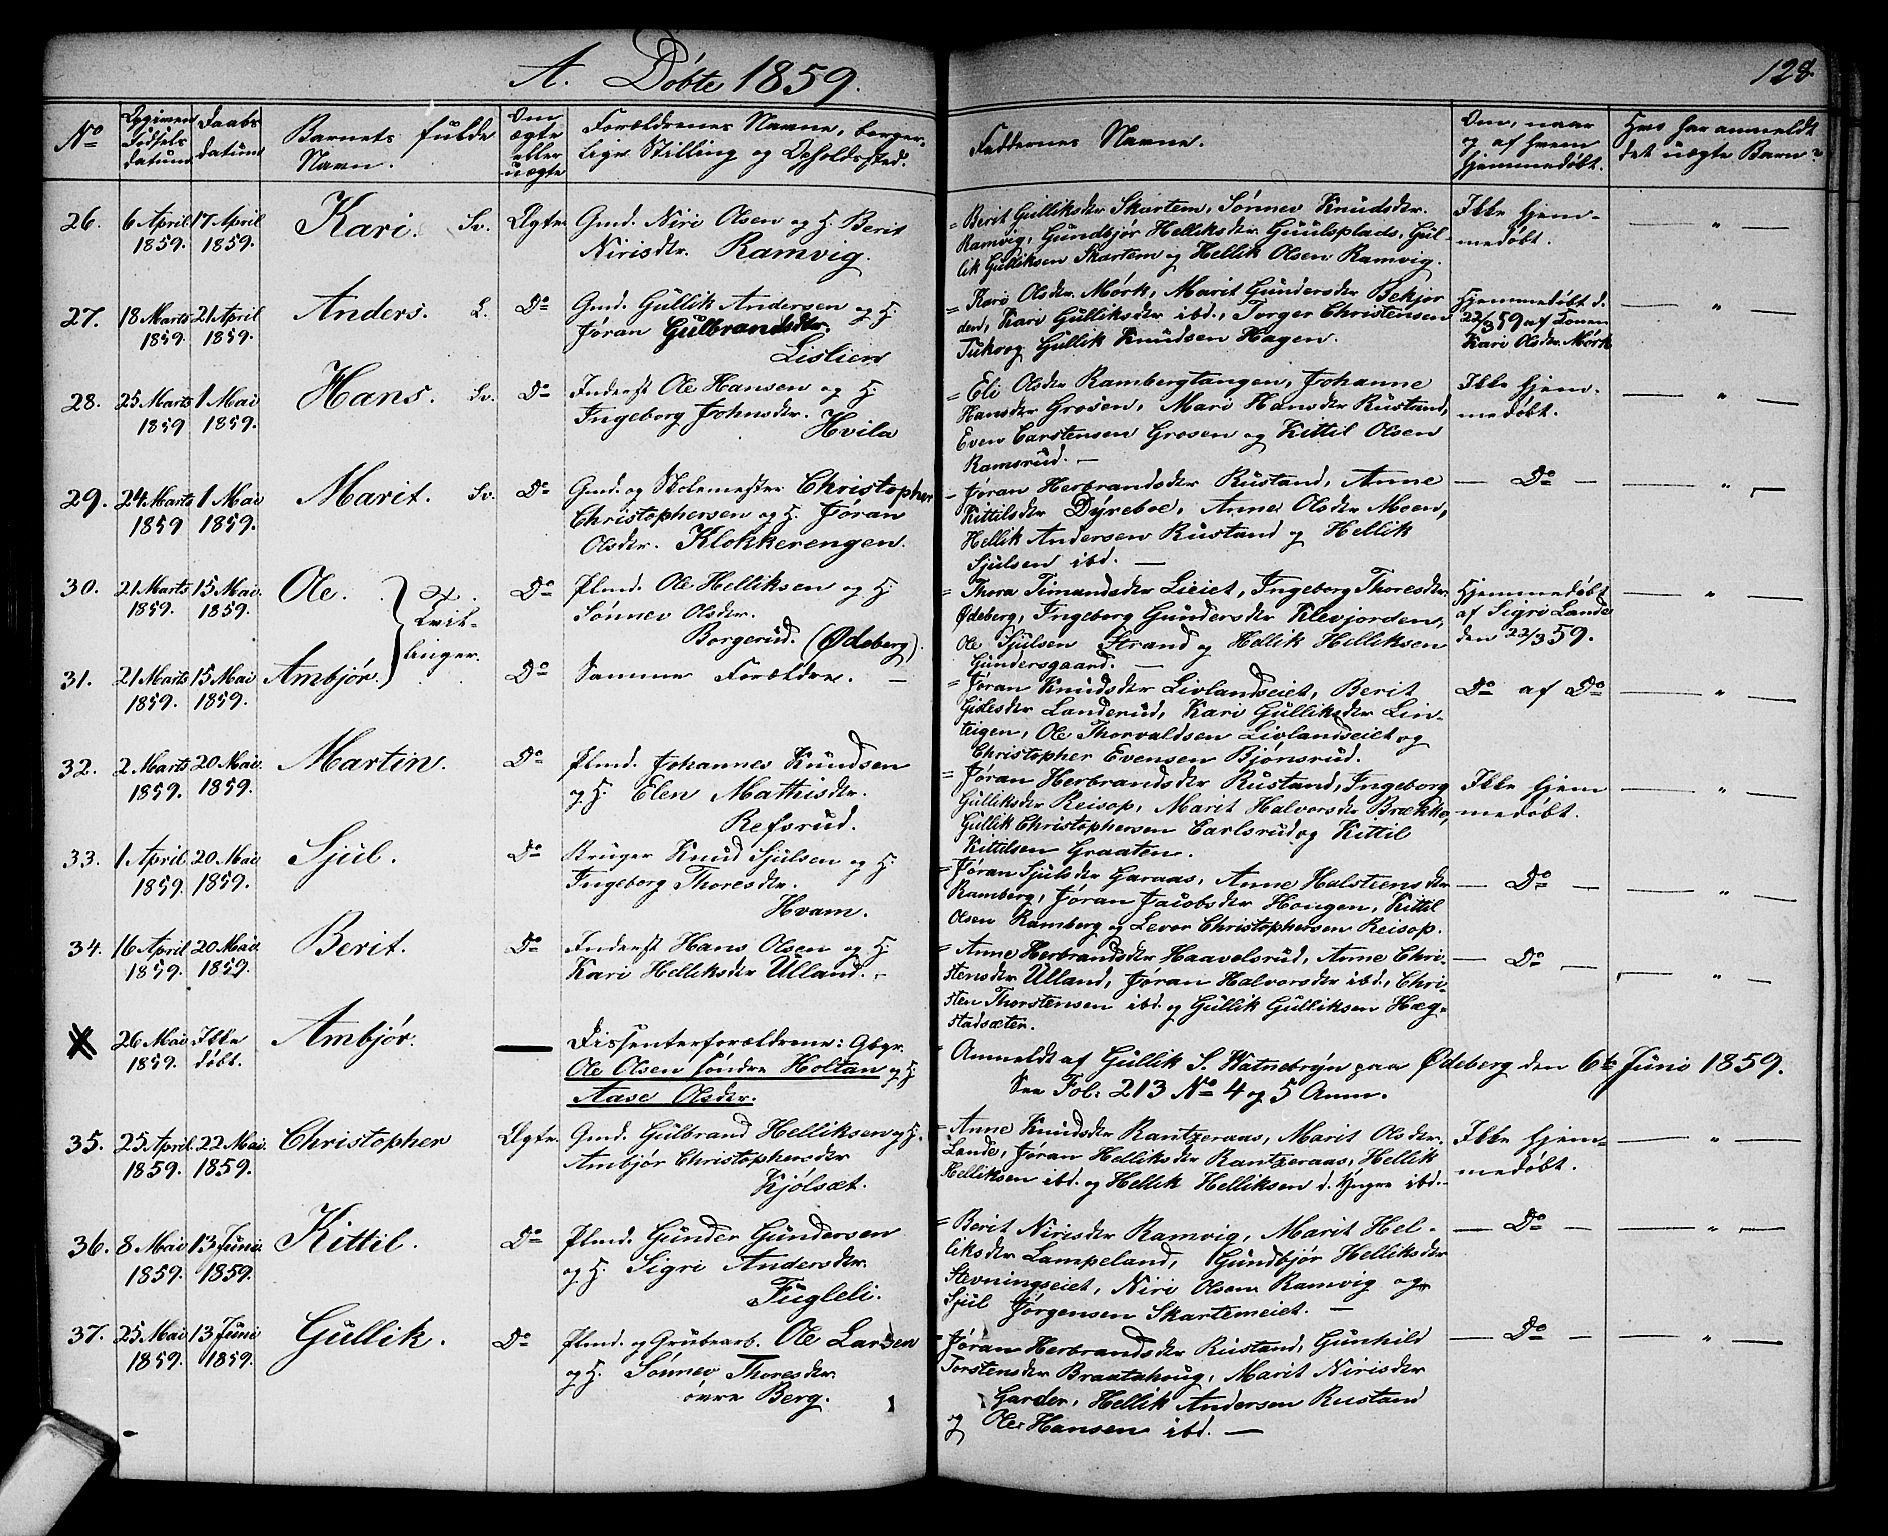 A. Døbte 1859.
128.
No
Legemen Fødsels datum
Daabs datum
Barnets fulde Navn.
Om ægte eller uægte
Forældrenes Navne, borgerlige Stilling og Opholdssted.
Faddernes Navne.
Om, naar og af hvem hjemmedøbt.
Hvo har anmeldt det uægte Barn?
26. 6 April 1859. 17 April 1859. Kari. Sv. Ægte
Gmd. Niri Olsen og H. Berit
Nirisdtr. Ramvig.
= Berit Gulliksdtr Skartem, Sønnev Knudsdtr.
Ramvig, Gundbjør Helliksdtr. Guulsplads, Gul-
lik Gulliksen Skartem og Hellik Olsen Ramvig.
Ikke hjem-
medøbt.
— " —
27. 18 Marts 1859. 21 April 1859. Anders. L. Do
Gmd. Gullik Andersen og H.
Jøran Gulbrandsdtr.
Lislien
= Kari Olsdtr. Mørk, Marit Gundersdtr Bekjor
den, Kari Gulliksdtr ibd., Torger Christensen
Tukvog Gullik Knudsen Hagen.
Hjemmedøbt d.
22/3 59 af Konen
Kari Olsdtr. Mørk
— " —
28. 25 Marts 1859 1 Mai 1859. Hans. Sv. Do
Inderst Ole Hansen og H.
Ingeborg Johnsdtr.
Hvila
= Eli Olsdtr Rambergtangen, Johanne
Hansdtr Grosen, Mari Hansdtr Rustand,
Even Carstensen Grosen og Kittil Olsen
Ramsrud. —
Ikke hjem-
medøbt.
— " —
29. 24 Marts 1859 1 Mai 1859. Marit. Sv. Do
Gmd. og Skolemester Christopher
Christophersen og H. Jøran
Olsdtr. Klokkerengen.
— Jøran Herbrandsdtr Rustand, Anne
Kittilsdtr Dyreboe, Anne Olsdtr Moen,
Hellik Andersen Rustand og Hellik
Sjulsen ibd. —
— Do —
— " —
30. 21 Marts 1859. 15 Mai. 1859. Ole. Do
Tvil-
linger.
Plmd. Ole Helliksen og H.
Sønnev Olsdtr.
Borgerud. (Ødeberg).
= Thora Timandsdtr Lieiet, Ingeborg Thoresdtr.
Ødeberg, Ingeborg Gundersdtr Klevjorden,
Ole Sjulsen Strand og Hellik Helliksen
Gundersgaard. —
Hjemmedøbt
af Sigri Lande
den 22/3 59.
— " —
31. 21 Marts 1859. 15 Mai 1859. Ambjør. Do
Samme Forældre. —
= Jøran Knudsdtr Livlandseiet, Berit
Gislesdtr Landerud, Kari Gulliksdtr Lin-
teigen, Ole Thorvaldsen Livlandseiet og
Christopher Evensen Bjørnsrud.
Do af Do
— " —
32. 2 Marts 1859. 20 Mai. 1859. Martin. Do
Plmd. Johannes Knudsen
og H. Elen Mathisdtr.
Refsrud.
= Jøran Herbrandsdtr Rustand, Ingeborg
Gulliksdtr Reisop, Marit Halvorsdtr Brækko,
Gullik Christophersen Carlsrud og Kittil
Kittilsen Graaten.
Ikke hjem
medøbt.
— " —
33. 1 April 1859 20 Mai 1859. Sjul. Do
Bruger Knud Sjulsen og H.
Ingeborg Thoresdtr.
Hvam.
= Jøran Sjulsdtr Garaas, Anne Halstensdtr
Ramberg, Jøran Jacobsdtr Hongen, Kittil
Olsen Ramberg og Levor Christophersen Reisop.
— Do —
— " —
34. 16 April 1859. 20 Mai. 1859. Berit. Do
Inderst Hans Olsen og H.
Kari Helliksdtr Ulland. —
= Anne Herbrandsdtr Haavelsrud, Anne Chri-
stensdtr. Ulland, Jøran Halvorsdtr ibd., Chri-
sten Thorstensen ibd. og Gullik Gulliksen Hæg-
stadsæter.
— Do —
— " —
26 Mai 1859. Ikke døbt. Ambjør. —
Dissenterforældrene: Gbgr.
Ole Olsen søndre Holtan og H.
Aase Olsdtr.
= Anmeldt af Gullik S. Watnebryn paa Ødeberg den 6te Juni 1859.
See Fol: 213 No 4 og 5 Anm.
35. 25 April 1859. 22 Mai 1859. Christopher Ægte
Gmd. Gulbrand Helliksen og H.
Ambjør Christophersdtr
Kjølsæt.
= Anne Knudsdtr Rantzeraas, Marit Olsdtr.
Lande, Jøran Helliksdtr Rantzeraas, Hellik
Helliksen ibd. og Hellik Helliksen d. Yngre ibd.—
Ikke hjem-
medøbt.
— " —
36. 8 Mai 1859. 13 Juni. 1859. Kittil. Do
Plmd. Gunder Gundersen
og H. Sigri Andersdtr.
Fugleli.
= Berit Nirisdtr Ramvig, Marit Hel-
liksdtr Lampeland, Gundbjør Helliksdtr
Stevningseiet, Niri Olsen Ramvig og
Sjul Jørgensen Skartemeiet. —
— Do —
— " —
37. 25 Mai 1859. 13 Juni 1859. Gullik. Do
Plmd. og Grubearb. Ole Larsen
og H. Sønnev Thoresdtr.
øvre Berg.
= Jøran Herbrandsdtr Rustand, Gunhild
Torstensdtr Braatahoug, Marit Nirisdtr
Garder, Hellik Andersen Rustand
og Ole Hansen ibd. —
— Do —
— " —